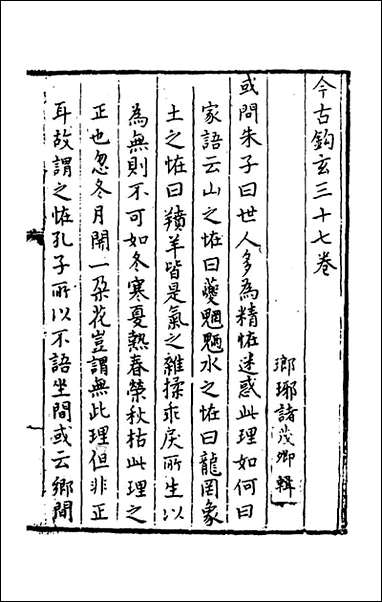 今古鈎玄三十七卷
瑯琊諸茂卿輯
或問朱子曰世人多為精恠迷惑此理如何曰
家語云山之恠曰夔魍魎水之恠曰龍罔象
土之恠曰羵羊皆是氣之雜揉乖戾所生以
為無則不可如冬寒夏熱春榮秋枯此理之
正也忽冬月開一朵花豈謂無此理但非正
耳故謂之恠孔子所以不語坐間或云鄉間